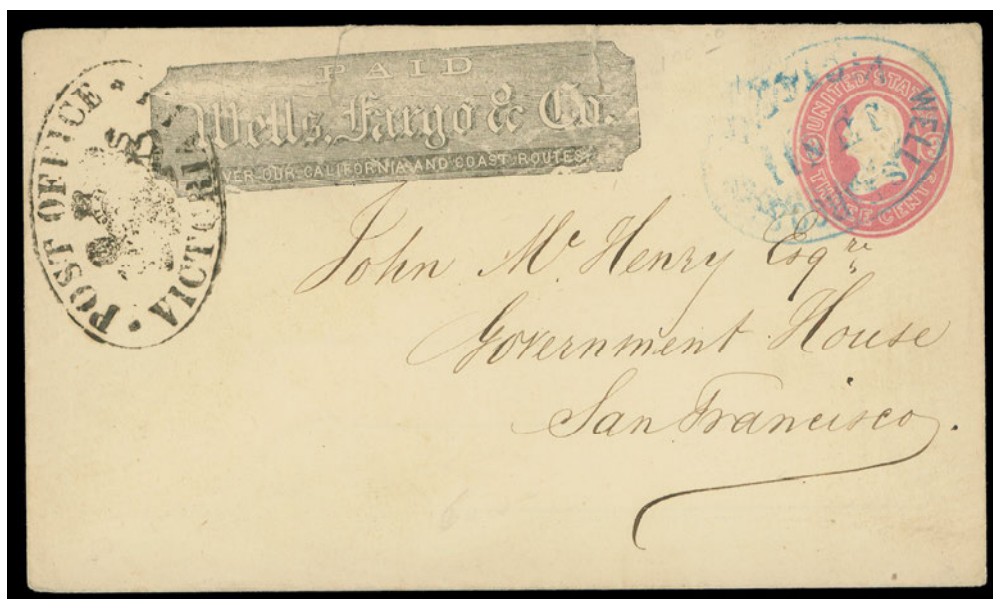 PAID
Wells, Fargo & Co.
OVER OUR CALIFORNIA AND COAST ROUTES.
POST OFFICE
VICTORIA
UNITED STATES
THREE CENTS
WELLS
John McHenry Esqre
Government House
San Francisco.